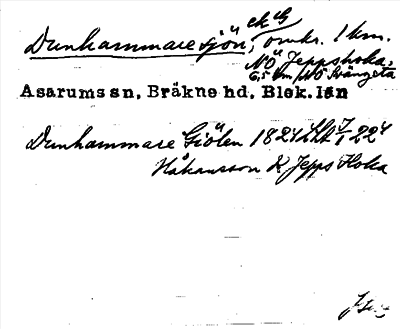 Dunhammaresjön, ek G
omkr. 1 km.
NÖ Jeppshoka,
6,5 km NÖ Kvängeta
Asarums sn, Bräkne hd. Blek. län
Dunhammare Giölen 1824 Lht 7/1 224
Håkansson K Jepps Hoka